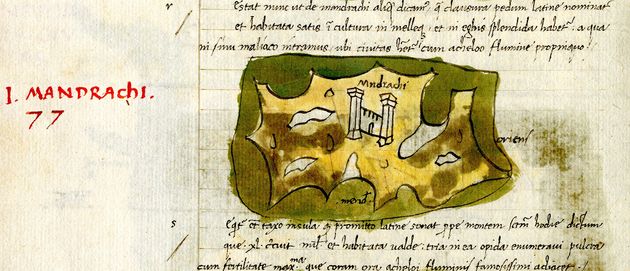 r
Restat nunc ut de mandrachi aliq̃d dicam: q̃ clausura pedum latine nominat
et habitata satis ĩ cultura in melleq; et in splendida habet. a qua
in sinu maliaco intramus, ubi civitas cum acheloo flumine propinquo.
I. MANDRACHI.
77
Mndrachi
oriens
merid.
s
taxo insula q̃ promitto latine sonat ppe montem sctm̃ hodie dictum
que .xl. circuit mil̃ et habitata valde: tria in ea opida enumeravi pulcra
cum fertilitate maxma. que coram ora acheloi fluminis famosissimi adjacet.